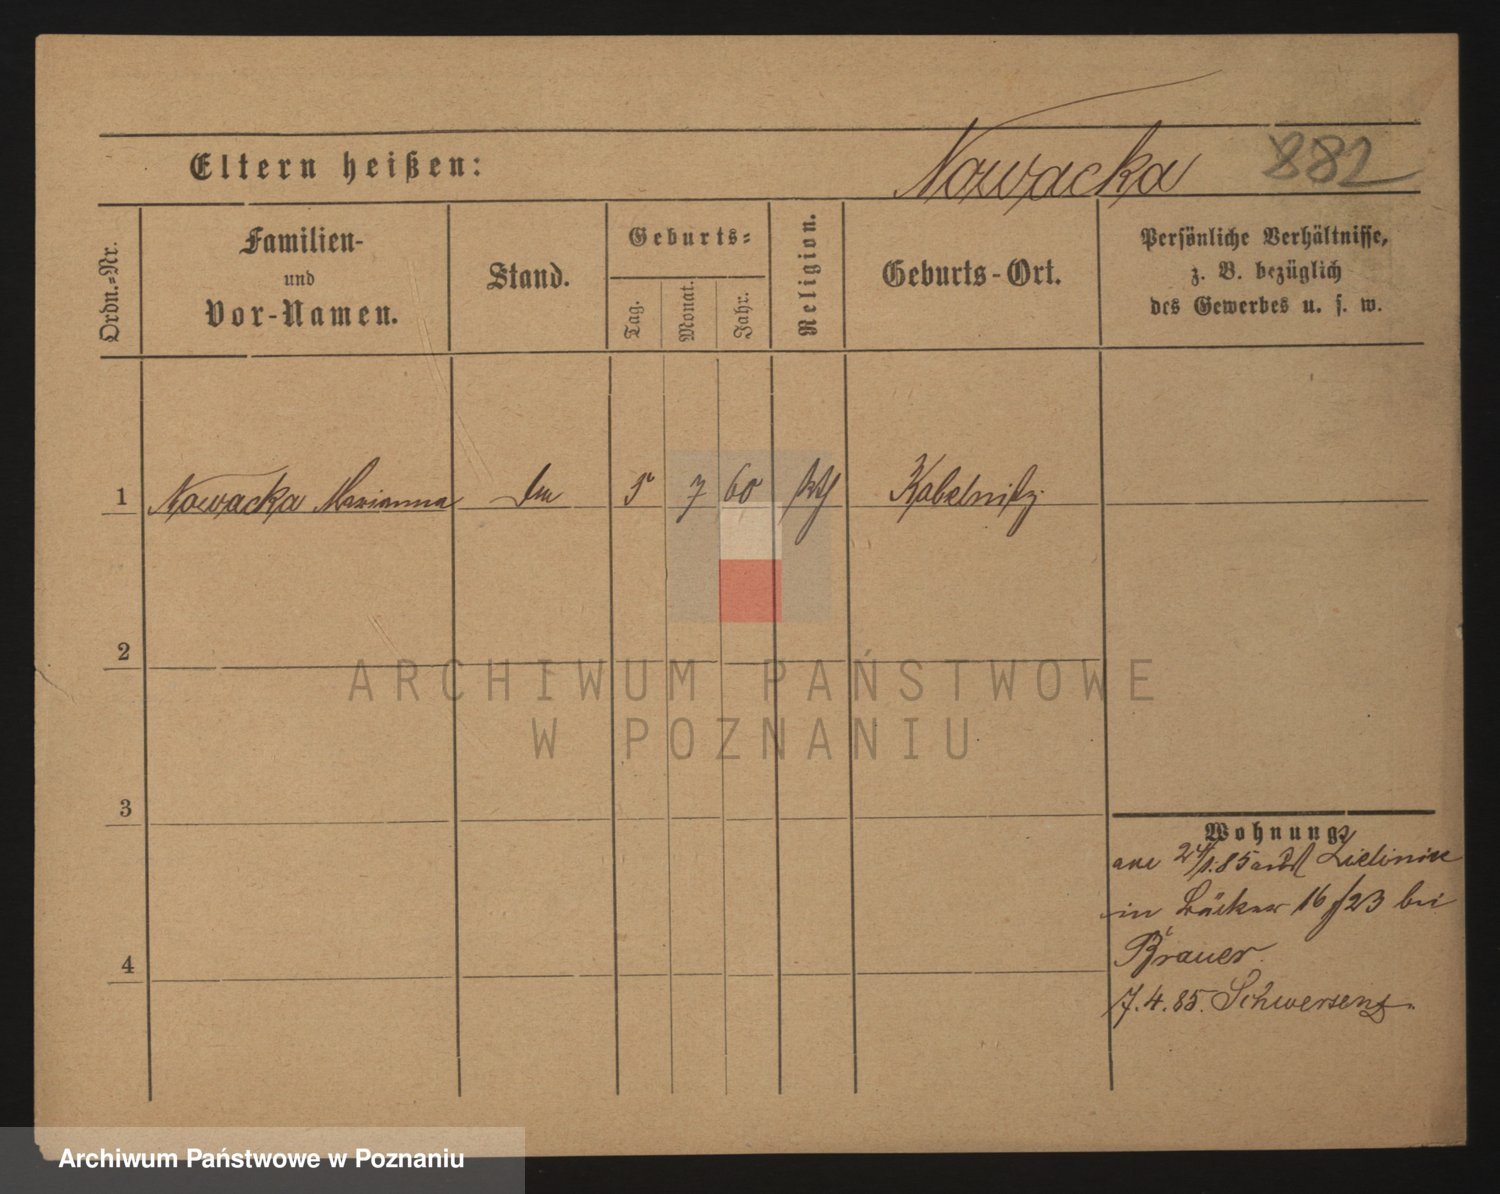 Nowacka 882
Eltern heißen:
Ordn.-Nr.
Familien-
und
Vor-Namen.
Stand.
Geburts-
Tag.
Monat.
Jahr.
Religion.
Geburts-Ort.
Persönliche Verhältnisse,
z. B. bezüglich
des Gewerbes u. s. w.
1 Nowacka Marianna 5 7 60 Kobelnitz
2
3
4
Wohnung
24/1.85
in Bäcker 16/23 bei
Brauer.
7.4.85. Schwersenz.
ARCHIWUM PAŃSTWOWE
W POZNANIU
Archiwum Państwowe w Poznaniu